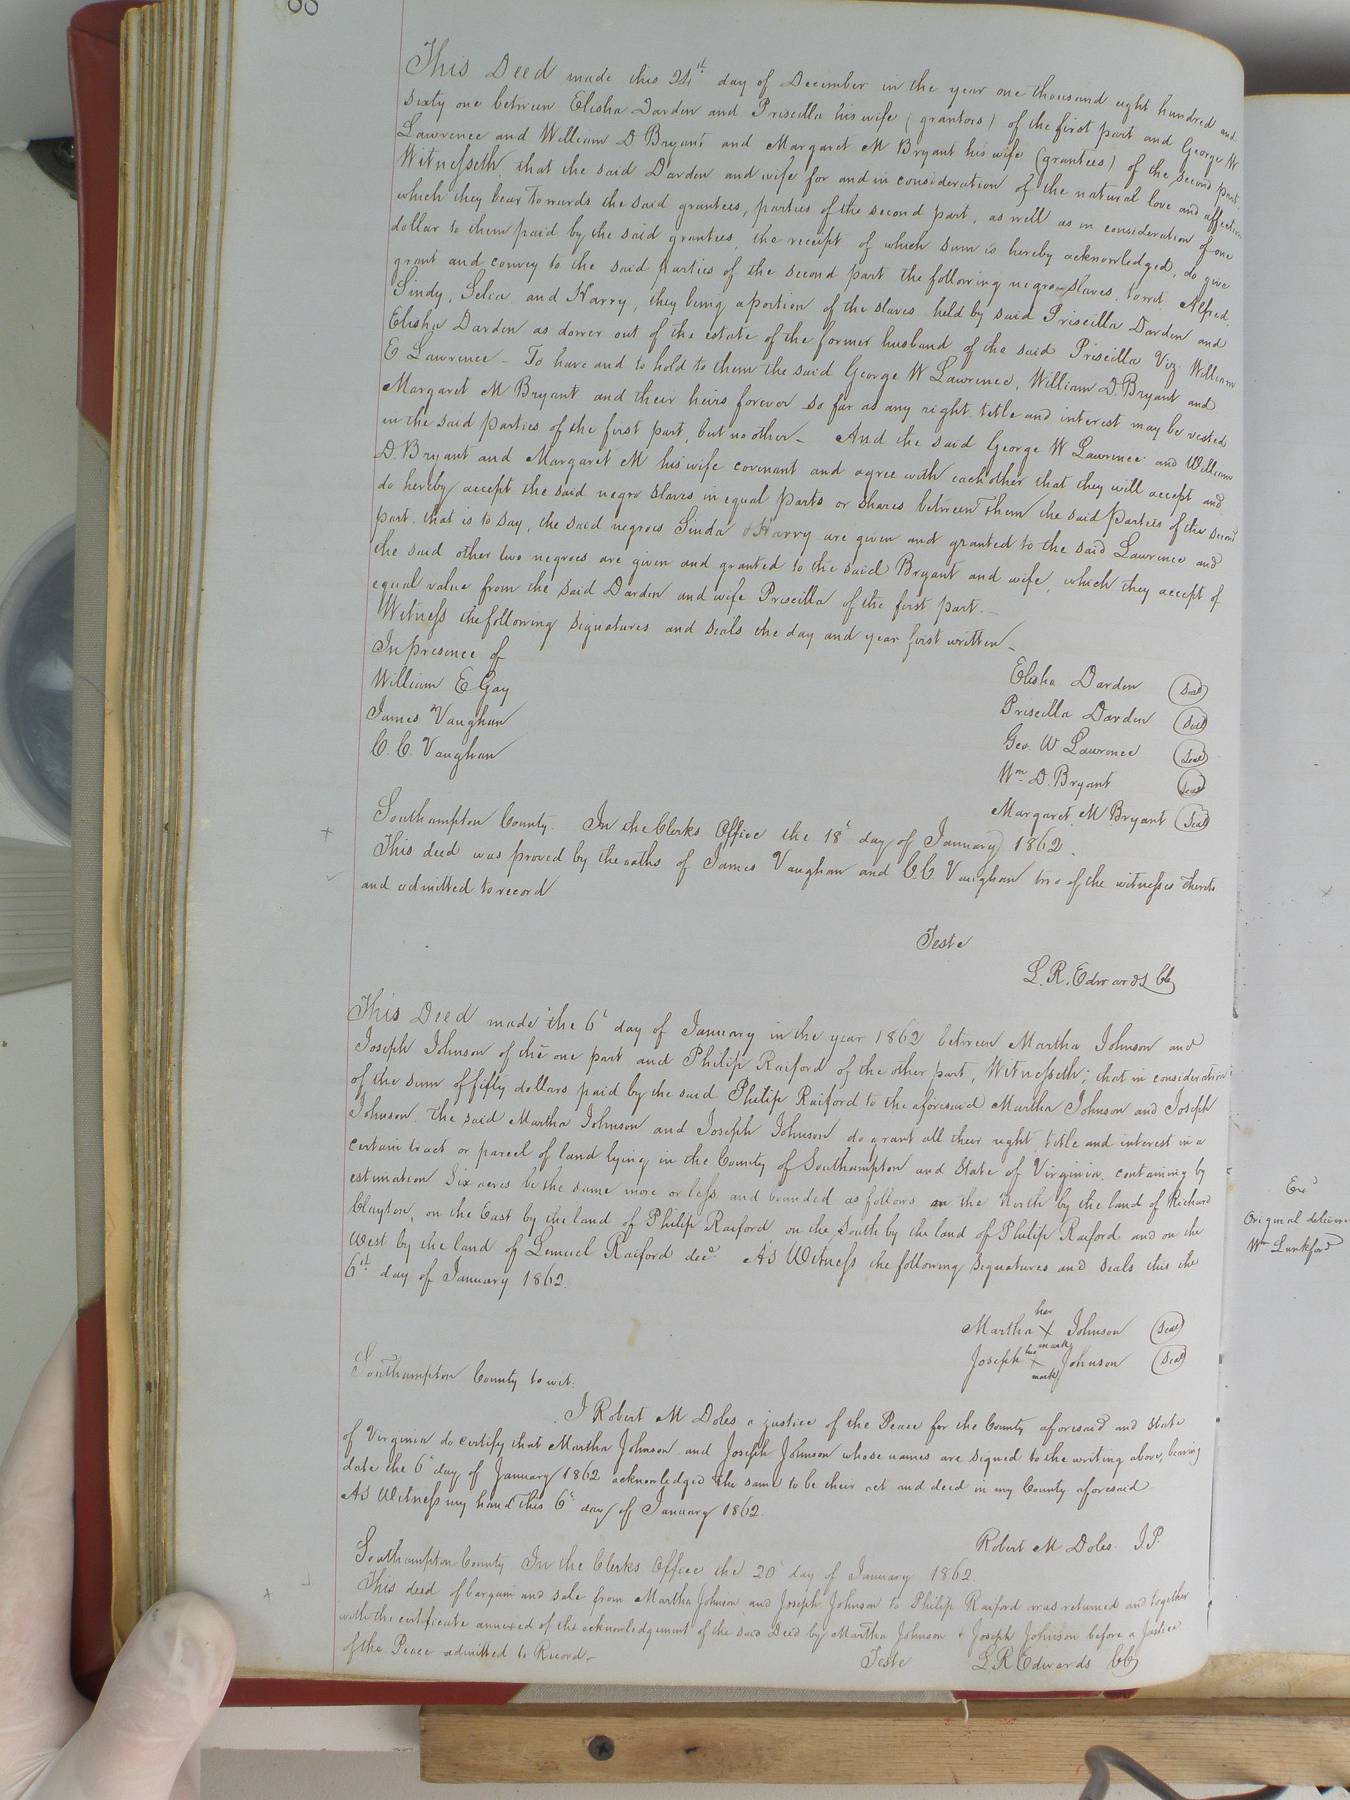 This Deed made this 24th day of December in the year one thousand eight hundred and
sixty one between Elisha Darden and Priscilla his wife (grantors) of the first part and George W
Lawrence and William D Bryant and Margaret M Bryant his wife (grantees) of the second part
Witnesseth, that the said Darden and wife for and in consideration of the natural love and affection
which they bear towards the said grantees, parties of the second part, as well as in consideration of one
dollar to them paid by the said grantees, the receipt of which sum is hereby acknowledged, do give
grant and convey to the said parties of the second part the following negro slaves, towit Alfred,
Sindy, Selia, and Harry, they being a portion of the slaves held by said Priscilla Darden and
Elisha Darden as dower out of the estate of the former husband of the said Priscilla Viz William
E Lawrence - To have and to hold to them the said George W Lawrence, William D. Bryant and
Margaret M Bryant and their heirs forever so far as any right title and interest may be vested
in the said parties of the first part, but no other - And the said George W Lawrence and William
D. Bryant and Margaret M his wife covenant and agree with each other that they will accept and
do hereby accept the said negro slaves in equal parts or shares between them the said parties of the second
part. that is to say, the said negroes Sinda & Harry are given and granted to the said Lawrence and
the said other two negroes are given and granted to the said Bryant and wife, which they accept of
equal value from the said Darden and wife Priscilla of the first part. -
Witness the following signatures and seals the day and year first written -
In presence of
William E Gay
James Vaughan
C. C. Vaughan
Elisha Darden (Seal)
Priscilla Darden (Seal)
Geo. W Lawrence (Seal)
Wm D. Bryant (Seal)
Margaret M Bryant (Seal)
Southampton County. In the Clerks Office the 18th day of January 1862.
This deed was proved by the oaths of James Vaughan and C.C. Vaughan two of the witnesses thereto
and admitted to record
Teste
L. R. Edwards Clk
This Deed made the 6th day of January in the year 1862 between Martha Johnson and
Joseph Johnson of the one part and Philip Raiford of the other part, Witnesseth; that in consideration
of the sum of fifty dollars paid by the said Philip Raiford to the aforesaid Martha Johnson and Joseph
Johnson. the said Martha Johnson and Joseph Johnson do grant all their right title and interest in a
certain tract or parcel of land lying in the County of Southampton and State of Virginia. containing by
estimation Six acres be the same more or less and bounded as follows on the North by the land of Richard
Clayton, on the East by the land of Philip Raiford on the South by the land of Philip Raiford, and on the
West by the land of Lemuel Raiford decd. As Witness the following signatures and seals this the
6th day of January 1862.
her
Martha X Johnson (Seal)
mark
his
Joseph X Johnson (Seal)
mark
Southampton County to wit.
I Robert M Doles a justice of the Peace for the County aforesaid and state
of Virginia do certify that Martha Johnson and Joseph Johnson whose names are signed to the writing above, bearing
date the 6th day of January 1862 acknowledged the same to be their act and deed in my County aforesaid.
As Witness my hand this 6th day of January 1862.
Robert M Doles J.P.
Southampton County In the Clerks Office the 20th day of January 1862.
This deed of bargain and sale from Martha Johnson and Joseph Johnson to Philip Raiford was returned and together
with the certificate annexed of the acknowledgement of the said Deed by Martha Johnson & Joseph Johnson before a Justice
of the Peace admitted to Record -
Teste L R Edwards Clk
Exd
Original deliver
Wm Lankford